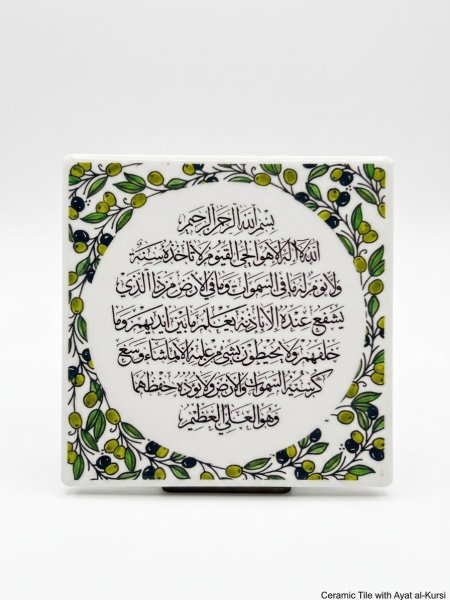 بسم الله الرحمن الرحيم
الله لا إله إلا هو الحي القيوم لا تأخذه سنة
ولا نوم له ما في السموات وما في الأرض من ذا الذي
يشفع عنده إلا بإذنه يعلم ما بين أيديهم وما
خلفهم ولا يحيطون بشيء من علمه إلا بما شاء وسع
كرسيه السموات والأرض ولا يؤده حفظهما
وهو العلي العظيم
Ceramic Tile with Ayat al-Kursi